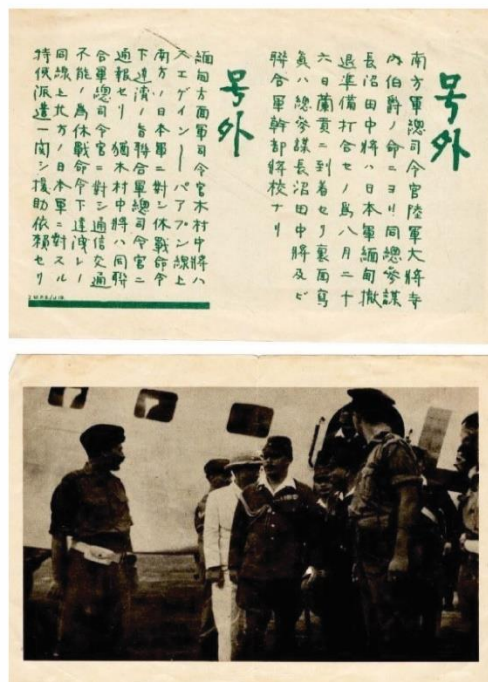 号外
南方軍總司令官陸軍大將寺
内伯爵ノ命ニヨリ同總參謀
長沼田中將ハ日本軍緬甸撤
退準備打合セノ為八月二十
六日蘭貢ニ到着セリ裏面寫
眞ハ總參謀長沼田中將及ビ
聯合軍幹部將校ナリ
号外
緬甸方面軍司令官木村中將ハ
スエゲイン—パアプン線上
南方ノ日本軍ニ對シ休戰命令
下達濟ノ旨聯合軍總司令官ニ
通報セリ 猶木村中將ハ同聯
合軍總司令官ニ對シ通信交通
不能ノ為休戰命令下達洩レノ
同線上北方ノ日本軍ニ對スル
特使派遣ニ関シ援助依頼セリ